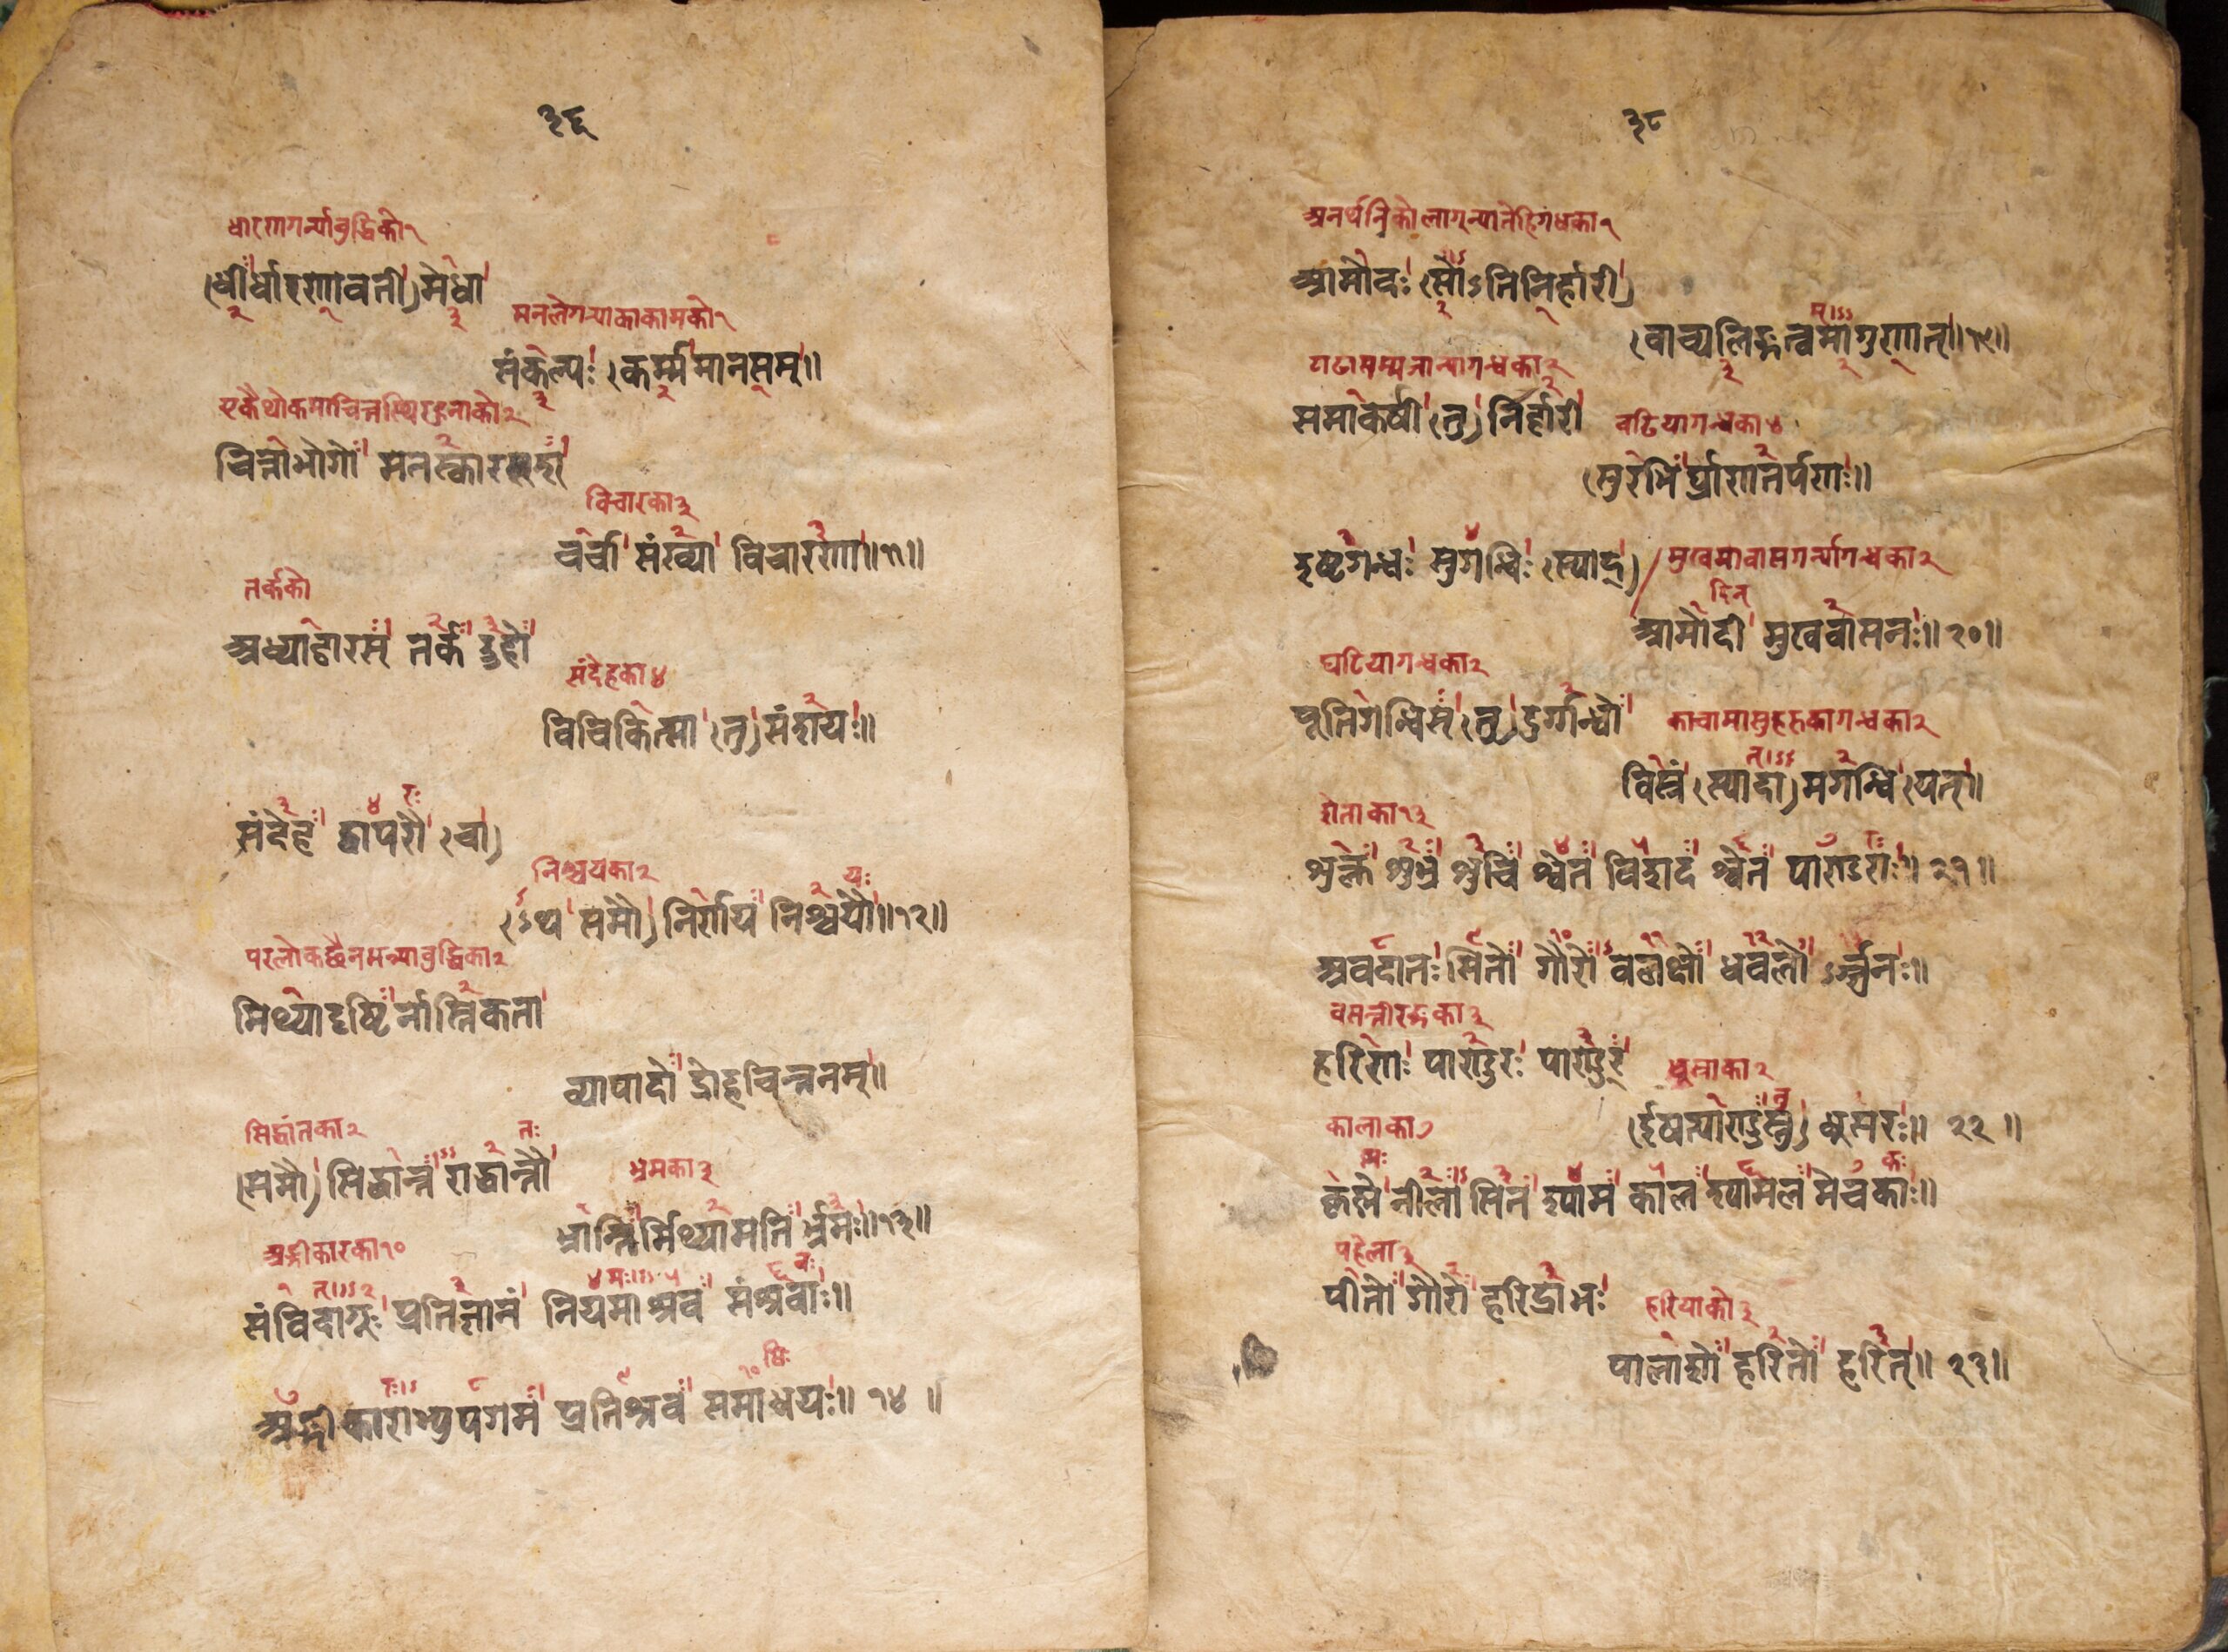 ३६
धारणागर्न्याबुद्धिको१
(धी)र्धारणावती)मेधा
मनलेगर्न्याकाकामको१
संकल्पः(कर्म्ममानसम्॥
एकैथोकमाचित्तस्थिरहुनाको२
चित्ताभोगो मनस्कारस्
विचारका३
चर्चा संख्या विचारणा॥११॥
तर्कको
अध्याहारस् तर्क ऊहो
संदेहका४
विचिकित्सा(तु)संशयः॥
संदेह द्वापरौ(चा)
निश्चयका२
(ऽथ समौ)निर्णय निश्चयौ॥१२॥
परलोकछैनभन्न्याबुद्धिका२
मिथ्यादृष्टिर्नास्तिकता
व्यापादो द्रोहचिन्तनम्॥
सिद्धांतका२
(समौ)सिद्धान्त राद्धान्तौ
भ्रमका३
भ्रान्तिर्मिथ्यामतिर्भ्रमः॥१३॥
अङ्गीकारका१०
संविदागूः प्रतिज्ञानं नियमाश्रव संश्रवाः॥
अङ्गीकाराभ्युपगम प्रतिश्रव समाधयः॥१४॥
३८
आमोदः(सोऽतिनिर्हारी)
(वाच्यलिङ्गत्वमागुणात्॥१९॥
समाकर्षी(तु)निर्हारी
बढियागन्धका४
(सुरभिर्घ्राणतर्पणः॥
इष्टगन्धः सुगन्धिः(स्याद्)
मुखमावासगर्न्यागन्धका२
आमोदी मुखवासनः॥२०॥
घटियागन्धका२
पूतिगन्धिस्(तु)दुर्गन्धो
विस्रं(स्यादा)मगन्धि(यत्॥
शेताका१३
शुक्ल शुभ्र शुचि श्वेत विशद श्येत पाण्डराः॥२१॥
अवदातः सितो गौरो वलक्षो धवलोऽर्ज्जुनः॥
वसन्तीरङ्गका३
हरिणः पाण्डुरः पाण्डुर्
धुसाका२
(ईषत्पाण्डुस्तु)धूसरः॥२२॥
कालाका७
कृष्णे नीलासित श्याम काल श्यामल मेचकाः॥
पहेला३
पीतो गौरो हरिद्राभः
हरियाको३
पालाशो हरितो हरित्॥२३॥